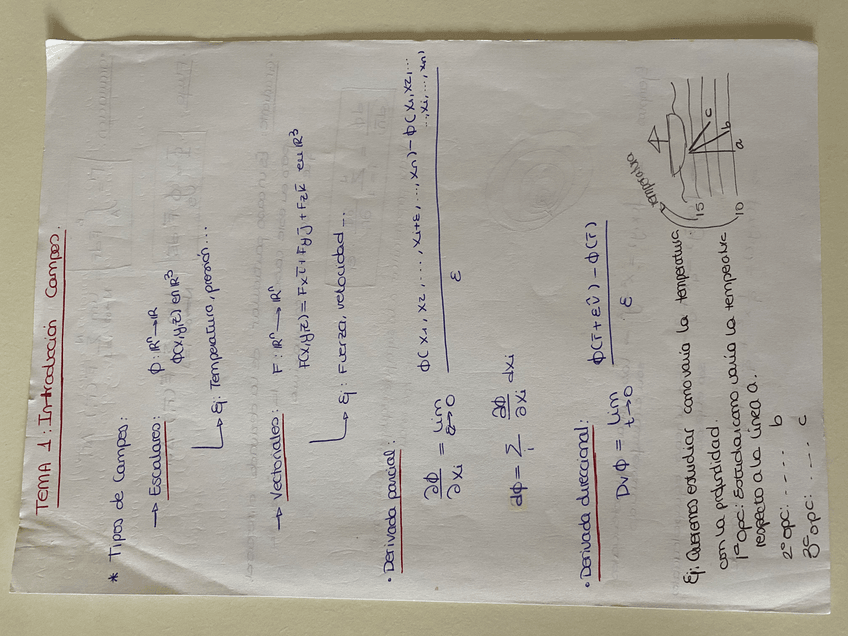 TEMA 1: Introducción Campos.
* Tipos de Campos:
→ Escalares: Φ: ℝⁿ → ℝ
Φ(x,y,z) en ℝ³
↳ Ej: Temperatura, presión...
→ Vectoriales: F: ℝⁿ → ℝⁿ
F(x,y,z) = Fx i̅ + Fy j̅ + Fz k̅ en ℝ³
↳ Ej: Fuerza, velocidad...
• Derivada parcial:
∂Φ/∂xi = lim ε→0 Φ(x1, x2, ..., xi+ε, ..., xn) - Φ(x1, x2, ... ..., xi, ..., xn) / ε
dΦ = Σi ∂Φ/∂xi dxi
• Derivada direccional:
DvΦ = lim t→0 Φ(r̅ + εv̂) - Φ(r̅) / ε
Ej: Queremos estudiar como varia la temperatura
con la profundidad.
1º opc: Estudiar como varia la temperatura
respecto a la linea a.
2º opc: ..... b
3º opc: ..... c
temperatura
15
10
a
b
c